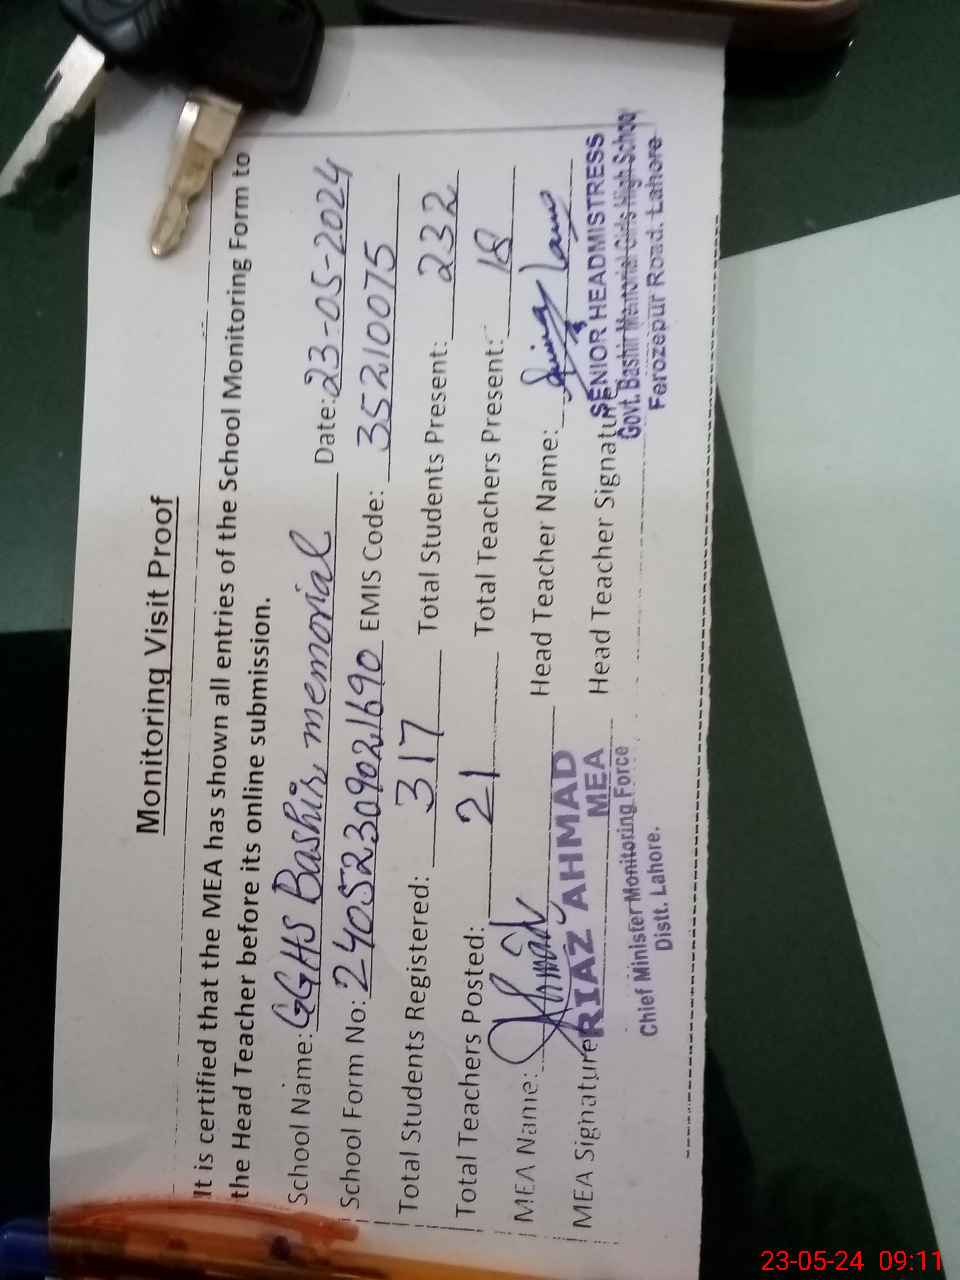 Monitoring Visit Proof
It is certified that the MEA has shown all entries of the School Monitoring Form to
the Head Teacher before its online submission.
School Name: GGHS Bashir memorial Date: 23-05-2024
School Form No: 24052309021690 EMIS Code: 35210075
Total Students Registered: 317 Total Students Present: 232
Total Teachers Posted: 21 Total Teachers Present: 18
MEA Name: Ahmad Head Teacher Name:
MEA Signature Head Teacher Signature
RIAZ AHMAD
MEA
Chief Minister Monitoring Force
Distt. Lahore.
SENIOR HEADMISTRESS
Govt. Bashir Memorial Girls High School
Ferozepur Road. Lahore
23-05-24 09:11